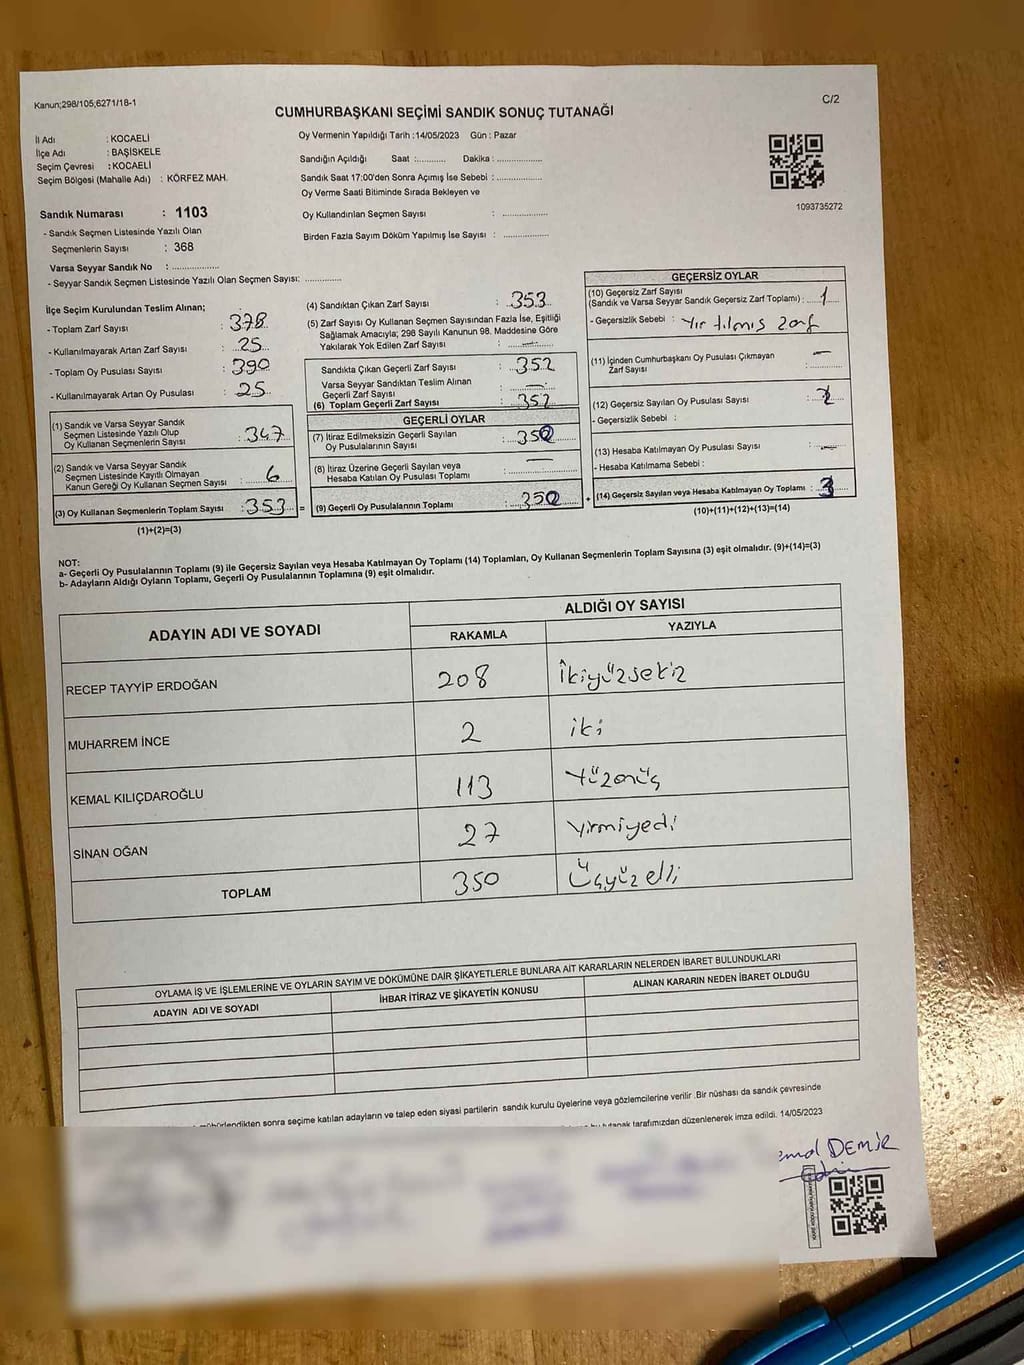 Kanun;298/105;6271/18-1
C/2
CUMHURBAŞKANI SEÇİMİ SANDIK SONUÇ TUTANAĞI
İl Adı : KOCAELİ
İlçe Adı : BAŞİSKELE
Seçim Çevresi : KOCAELİ
Seçim Bölgesi (Mahalle Adı) : KÖRFEZ MAH.
Sandık Numarası : 1103
- Sandık Seçmen Listesinde Yazılı Olan
Seçmenlerin Sayısı : 368
Varsa Seyyar Sandık No : ..................
- Seyyar Sandık Seçmen Listesinde Yazılı Olan Seçmen Sayısı: .............
Oy Vermenin Yapıldığı Tarih :14/05/2023 Gün : Pazar
Sandığın Açıldığı Saat :........... Dakika : .................
Sandık Saat 17:00'den Sonra Açımış İse Sebebi : .................
Oy Verme Saati Bitiminde Sırada Bekleyen ve
Oy Kullandırılan Seçmen Sayısı : .................
Birden Fazla Sayım Döküm Yapılmış İse Sayısı : .................
1093735272
İlçe Seçim Kurulundan Teslim Alınan;
- Toplam Zarf Sayısı : 378
- Kullanılmayarak Artan Zarf Sayısı : 25
- Toplam Oy Pusulası Sayısı : 390
- Kullanılmayarak Artan Oy Pusulası : 25
(1) Sandık ve Varsa Seyyar Sandık
Seçmen Listesinde Yazılı Olup
Oy Kullanan Seçmenlerin Sayısı : 347
(2) Sandık ve Varsa Seyyar Sandık
Seçmen Listesinde Kayıtlı Olmayan
Kanun Gereği Oy Kullanan Seçmen Sayısı : 6
(3) Oy Kullanan Seçmenlerin Toplam Sayısı : 353 =
(1)+(2)=(3)
(4) Sandıktan Çıkan Zarf Sayısı : 353
(5) Zarf Sayısı Oy Kullanan Seçmen Sayısından Fazla İse, Eşitliği
Sağlamak Amacıyla; 298 Sayılı Kanunun 98. Maddesine Göre
Yakılarak Yok Edilen Zarf Sayısı : —
Sandıkta Çıkan Geçerli Zarf Sayısı : 352
Varsa Seyyar Sandıktan Teslim Alınan
Geçerli Zarf Sayısı : —
(6) Toplam Geçerli Zarf Sayısı : 352
GEÇERLİ OYLAR
(7) İtiraz Edilmeksizin Geçerli Sayılan
Oy Pusulalarının Sayısı : 350
(8) İtiraz Üzerine Geçerli Sayılan veya
Hesaba Katılan Oy Pusulası Toplamı : —
(9) Geçerli Oy Pusulalarının Toplamı : 350 +
GEÇERSİZ OYLAR
(10) Geçersiz Zarf Sayısı
(Sandık ve Varsa Seyyar Sandık Geçersiz Zarf Toplamı) : 1
- Geçersizlik Sebebi : Yırtılmış zarf
(11) İçinden Cumhurbaşkanı Oy Pusulası Çıkmayan
Zarf Sayısı : —
(12) Geçersiz Sayılan Oy Pusulası Sayısı : 2
- Geçersizlik Sebebi :
(13) Hesaba Katılmayan Oy Pusulası Sayısı : —
- Hesaba Katılmama Sebebi :
(14) Geçersiz Sayılan veya Hesaba Katılmayan Oy Toplamı : 3
(10)+(11)+(12)+(13)=(14)
NOT:
a- Geçerli Oy Pusulalarının Toplamı (9) ile Geçersiz Sayılan veya Hesaba Katılmayan Oy Toplamı (14) Toplamları, Oy Kullanan Seçmenlerin Toplam Sayısına (3) eşit olmalıdır. (9)+(14)=(3)
b- Adayların Aldığı Oyların Toplamı, Geçerli Oy Pusulalarının Toplamına (9) eşit olmalıdır.
ADAYIN ADI VE SOYADI
ALDIĞI OY SAYISI
RAKAMLA YAZIYLA
RECEP TAYYİP ERDOĞAN 208 İkiyüzsekiz
MUHARREM İNCE 2 iki
KEMAL KILIÇDAROĞLU 113 Yüzonüç
SİNAN OĞAN 27 Yirmiyedi
TOPLAM 350 Üçyüzelli
OYLAMA İŞ VE İŞLEMLERİNE VE OYLARIN SAYIM VE DÖKÜMÜNE DAİR ŞİKAYETLERLE BUNLARA AİT KARARLARIN NELERDEN İBARET BULUNDUKLARI
ADAYIN ADI VE SOYADI İHBAR İTİRAZ VE ŞİKAYETİN KONUSU ALINAN KARARIN NEDEN İBARET OLDUĞU
sonra seçime katılan adayların ve talep eden siyasi partilerin sandık kurulu üyelerine veya gözlemcilerine verilir .Bir nüshası da sandık çevresinde
tarafımızdan düzenlenerek imza edildi. 14/05/2023
DEMİR